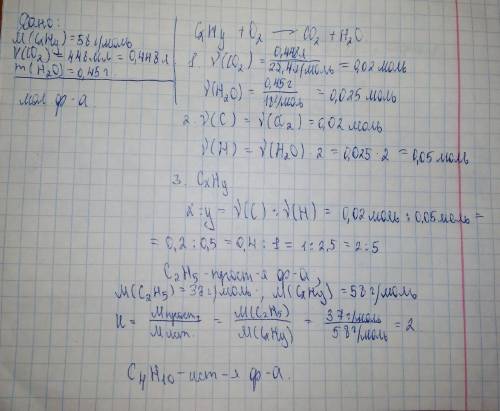 Дано:
M(CxHy)=58 г/моль
V(CO2)=448 мл=0,448 л
m(H2O)=0,45г
мол ф-а
CxHy + O2 → CO2 + H2O
1. ν(CO2)=0,448л/22,4л/моль=0,02 моль
ν(H2O)=0,45г/18г/моль=0,025 моль
2. ν(C)=ν(CO2)=0,02 моль
ν(H)=ν(H2O)·2=0,025·2=0,05 моль
3. CxHy
x:y=ν(C):ν(H)=0,02 моль:0,05 моль=
=0,2:0,5=0,4:1=1:2,5=2:5
C2H5-прост-я ф-а,
M(C2H5)=37г/моль, M(CxHy)=58г/моль
=M(C2H5)/M(CxHy)=37г/моль/58г/моль=2
C4H10-ист-я ф-а.